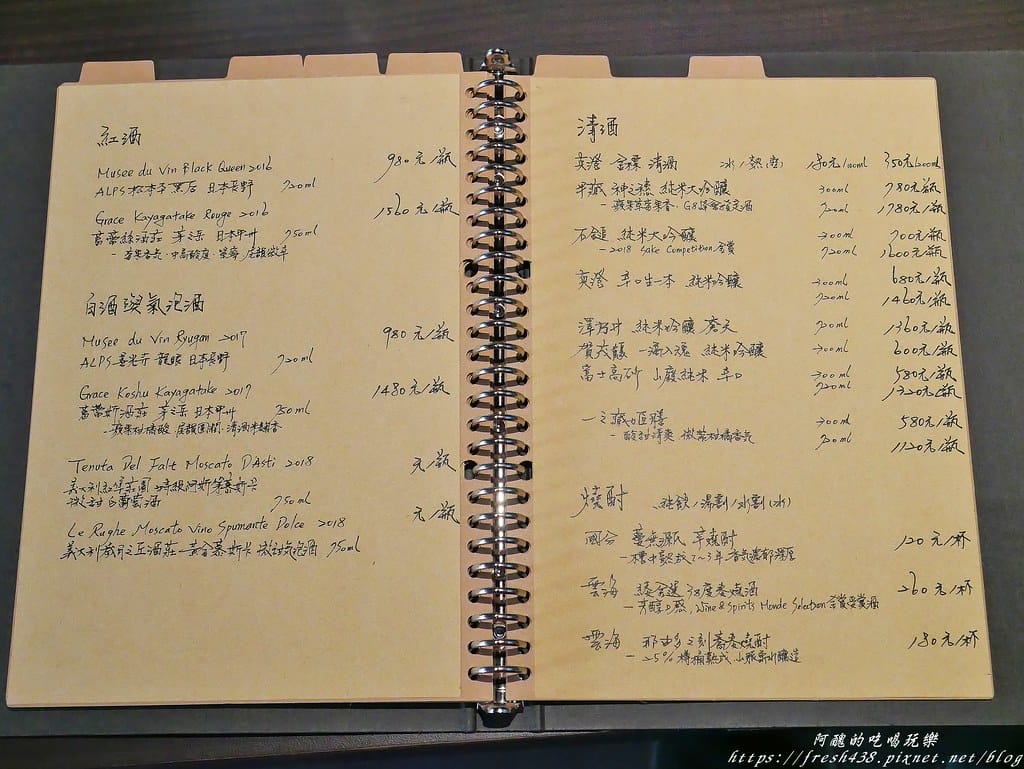 紅酒
Musee du Vin Black Queen 2016 980元/瓶
ALPS松本平黑后 日本長野 720ml
Grace Kayagatake Rouge 2016 1560元/瓶
葛蕾絲酒莊 茅之岳 日本甲州 750ml
白酒與氣泡酒
Musee du Vin Ryugan 2017 980元/瓶
ALPS善光寺 龍眼 日本長野 720ml
Grace Koshu Kayagatake 2017 1480元/瓶
葛蕾絲酒莊 茅之岳 日本甲州 750ml
Tenuta Del Falt Moscato D'Asti 2018 元/瓶
微甜白葡萄酒 750ml
Le Rughe Moscato Vino Spumante Dolce 2018 元/瓶
義大利歲月之丘酒莊-黃金慕斯卡 微甜氣泡酒 750ml
清酒
真澄 清酒 冰/熱 180元/100ml 350元/200ml
半藏 神之穗 純米大吟釀 300ml 780元/瓶
720ml 1780元/瓶
石鎚 純米大吟釀 300ml 700元/瓶
- 2018 Sake Competition 金賞 720ml 1600元/瓶
真澄 辛口生一本 純米吟釀 300ml 680元/瓶
720ml 1460元/瓶
純米吟釀 720ml 1360元/瓶
賀茂鶴 一滴入魂 純米吟釀 300ml 600元/瓶
富士高砂 山廢純米 辛口 300ml 580元/瓶
720ml 1320元/瓶
一之藏 300ml 580元/瓶
- 酸甜清爽 720ml 1120元/瓶
燒酎 純飲/湯割/水割(冰)
國分 120元/杯
雲海 38度麥燒酒 260元/杯
Wine & Spirits Monde Selection 金賞受賞酒
雲海 那由多之刻蕎麥燒酎 180元/杯
- 25% 樽桶熟成
阿醜的吃喝玩樂
https://fresh438.pixnet.net/blog